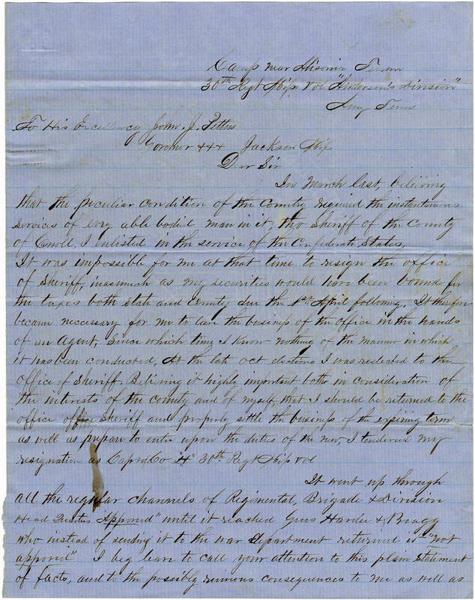 Camp near Tenn
30th Regt Miss Vol "Anderson's Division"
Army Tenn
To His Excellency John J. Pettus
Governor &&& Jackson Miss
Dear Sir
In March last, beliving
that the peculiar condition of the Country required the instantanious
services of evry able bodid man in it, tho Sheriff of the County
of Carroll I enlisted in the service of the Confederate States,
It was impossible for me at that time to resign the office
of Sheriff, inasmuch as my securities would have been bound for
the taxes both state and county due the 1st April following, It therefore
became necessary for me to leave the business of the office in the hands
of an Agent, since which time I know nothing of the manner in which
it has been conducted, At the late Oct elections I was reelected to the
office of Sheriff. Beliving it highly important both in consideration of
the interests of the county and of myself, that I should be returned to the
office of Sheriff and properly settle the business of the expiring term
as well as prepare to enter upon the duties of the new, I tendered my
resignation as Capt of Co 30th Regt Miss Vol
It went up through
all the regular channels of Regimental, Brigade & Division
Head Quarters "Approved" until it reached Genls Hardee & Bragg
who instead of sending it to the war department returned it "not
approved" I beg leave to call your attention to this plain statement
of facts, and to the possibly ruinous consequences to me as well as